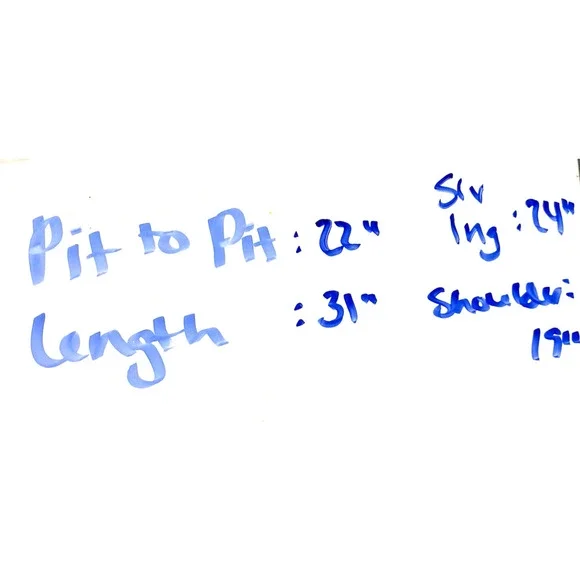 Pit to Pit : 22"
Length : 31"
Slv
lng : 24"
Shoulder:
19"